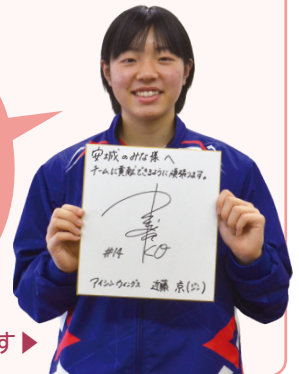 安城のみな様へ
チームに貢献できるように頑張ります。
#14
アイシンウィングス 近藤 京(ミヤコ)
す▶